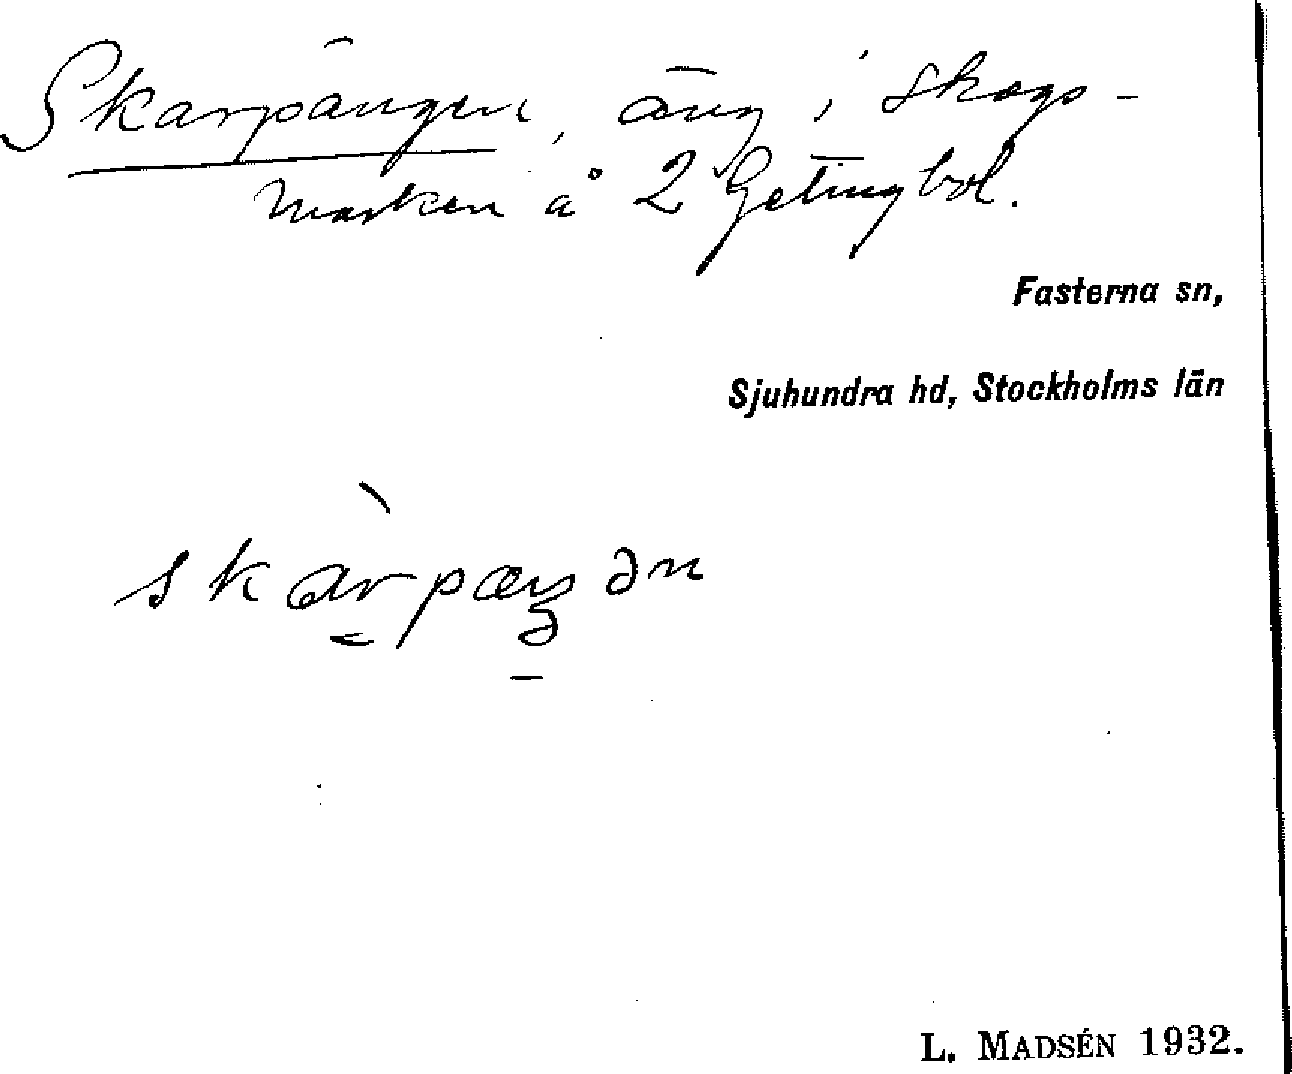 Skarpängen, äng i skogs-
marken å 2 Getingbol.
Fasterna sn,
Sjuhundra hd, Stockholms län
skàrpæŋən
L. MADSÉN 1932.